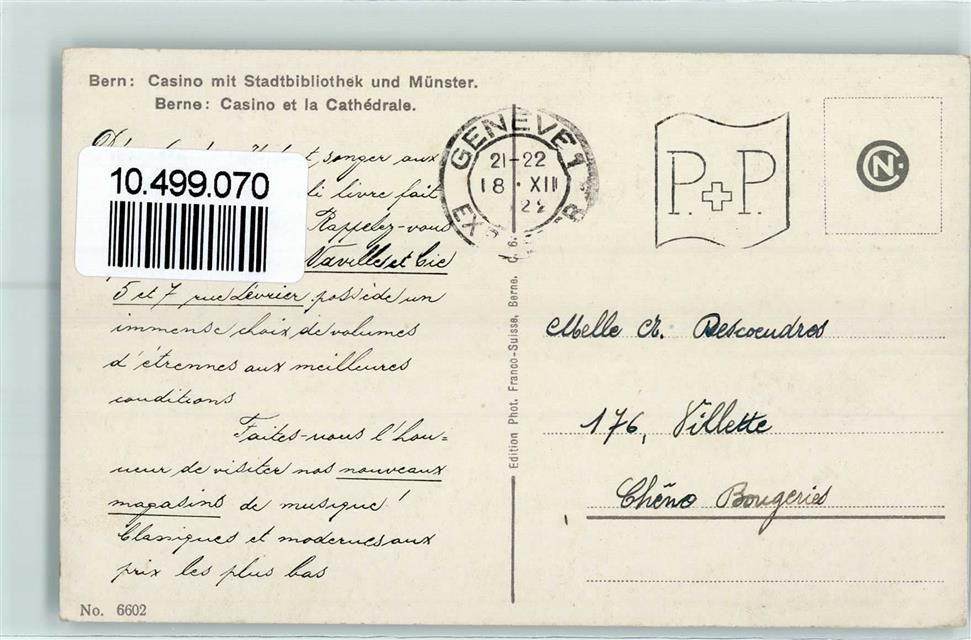 Bern: Casino mit Stadtbibliothek und Münster.
Berne: Casino et la Cathédrale.
songer aux
10.499.070
livre fait
Rappelez-vous
Naville et Cie
5 et 7 rue Lévrier possède un
immense choix de volumes
d'étrennes aux meilleures
conditions
Faites-vous l'hon=
neur de visiter nos nouveaux
magasins de musique!
Classiques et modernes aux
prix les plus bas
No. 6602
GENÈVE 1
21-22
18·XII
22
P+P
Edition Phot. Franco-Suisse, Berne.
Melle Descoeudres
176, Villette
Chêne Bougeries